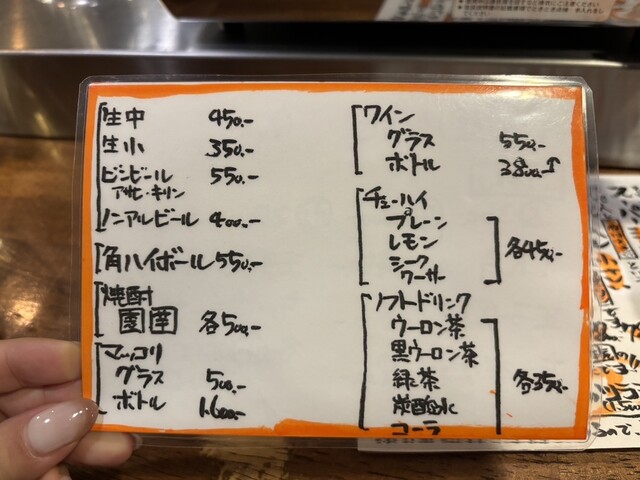 生中 450.-
生小 350.-
ビンビール 550.-
アサヒ・キリン
ノンアルビール 400.-
角ハイボール 550.-
焼酎
各500.-
マッコリ
グラス 500.-
ボトル 1.600.-
ワイン
グラス 550.-
ボトル 3800.-
チューハイ
プレーン
レモン
シークワーサー
各450.-
ソフトドリンク
ウーロン茶
黒ウーロン茶
緑茶
炭酸水
コーラ
各350.-